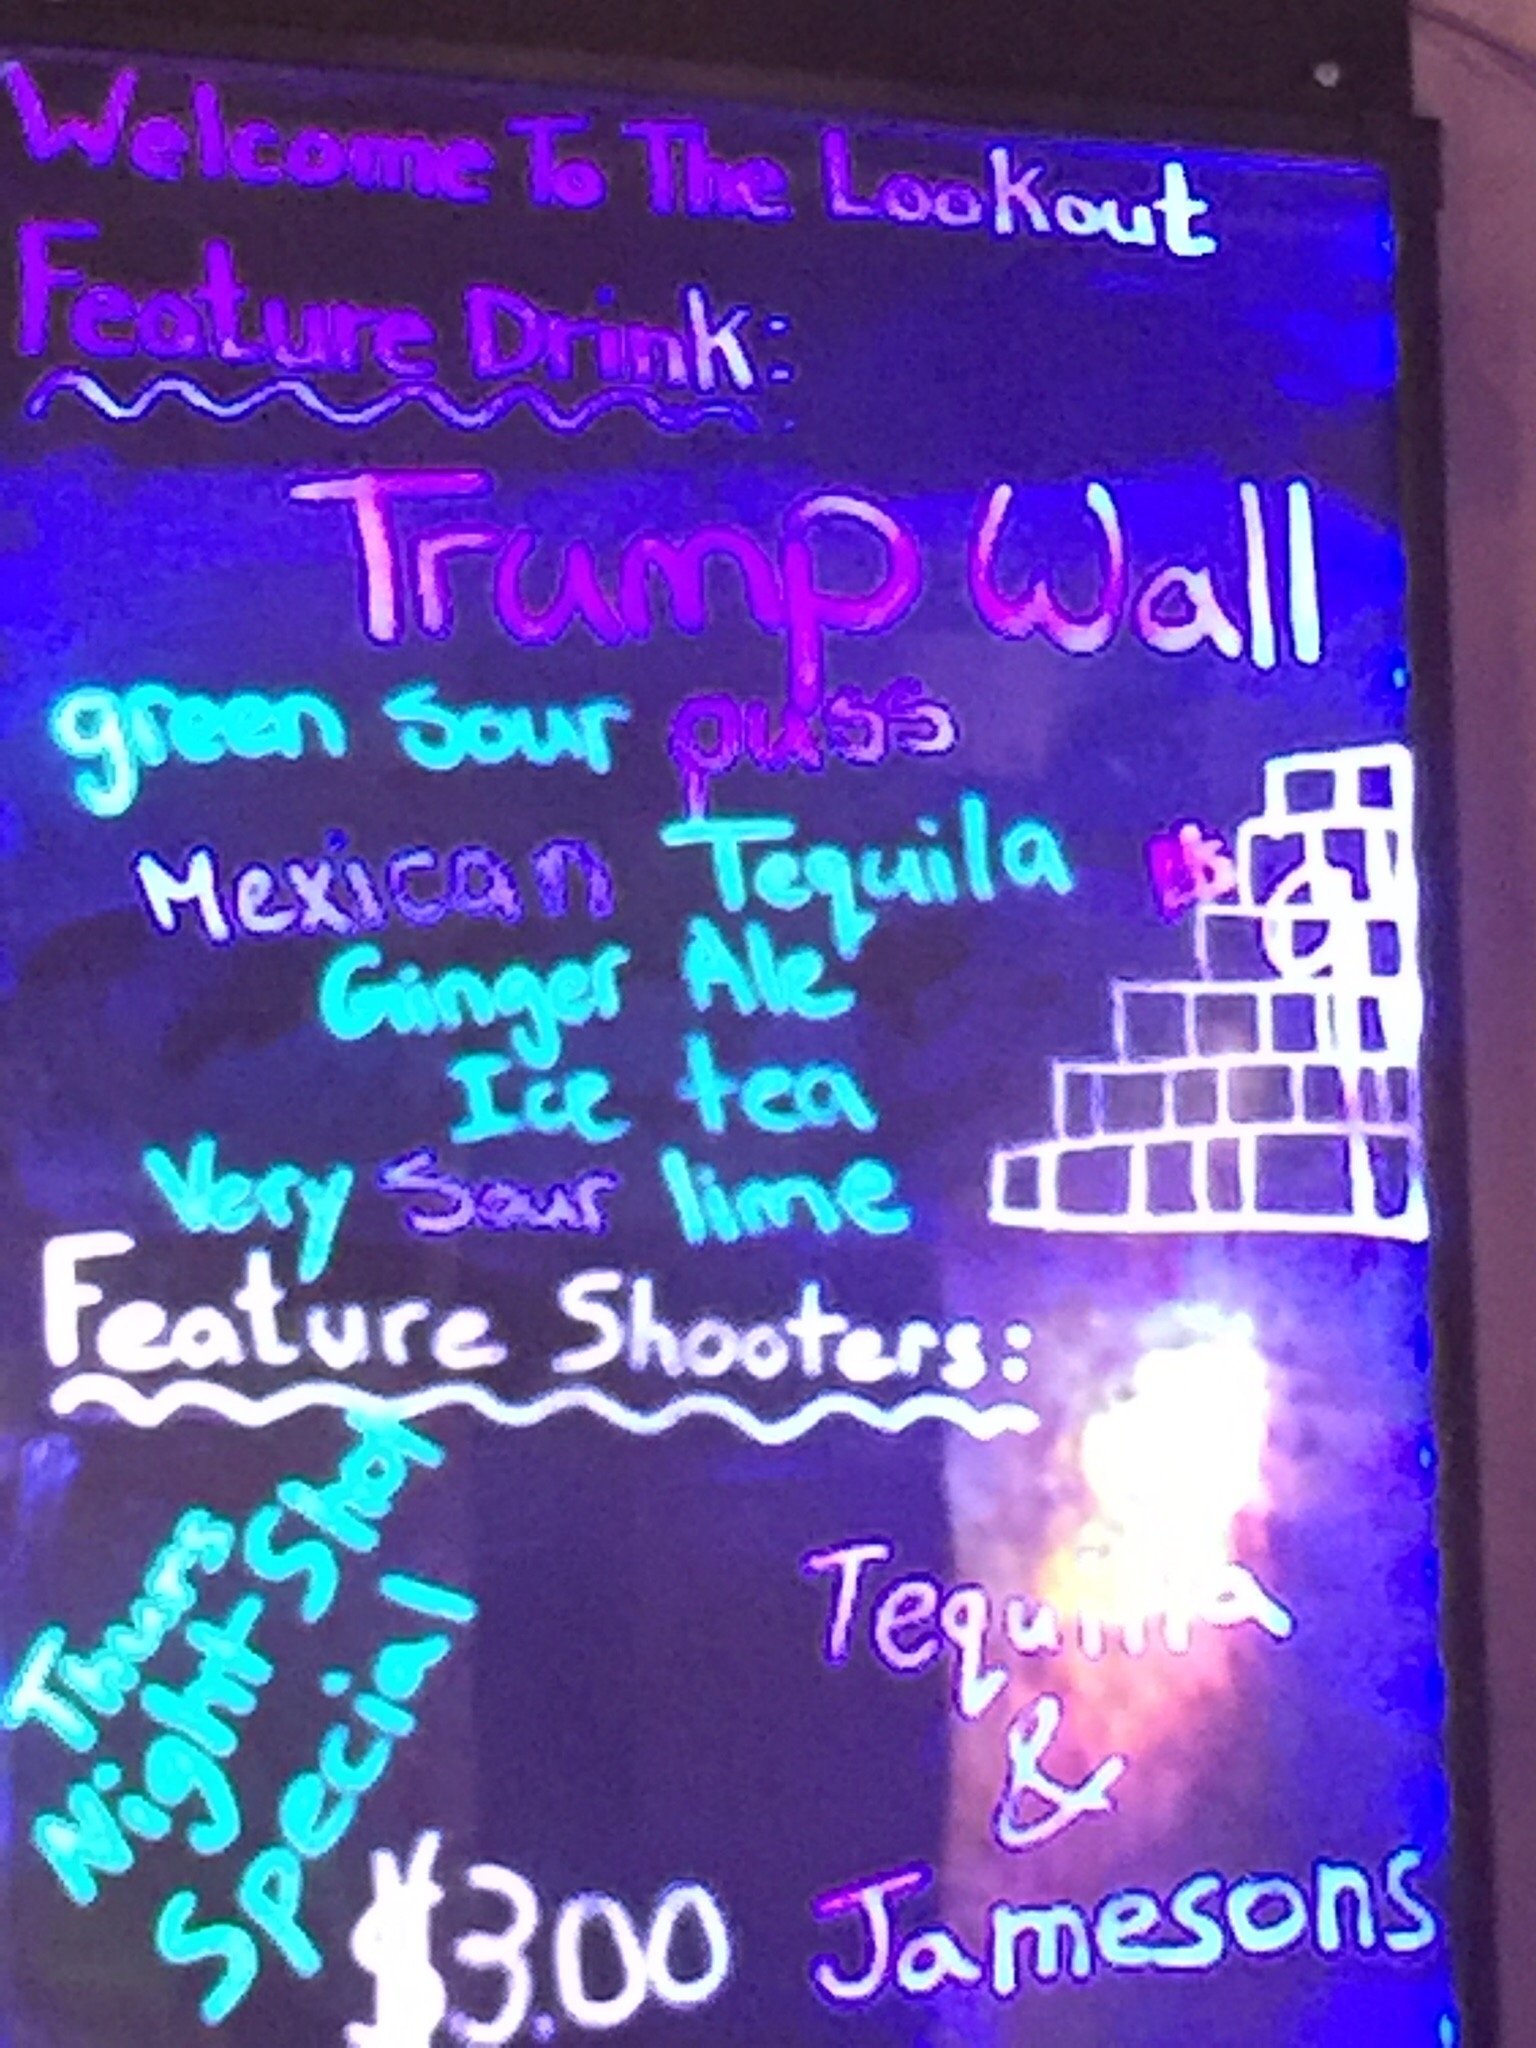 Welcome To The Lookout
Feature Drink:
Trump Wall
green sour puss
Mexican Tequila
Ginger Ale
Ice tea
Very Sour lime
Feature Shooters:
Thurs
Night Shot
Special
$3.00
Tequila
&
Jamesons